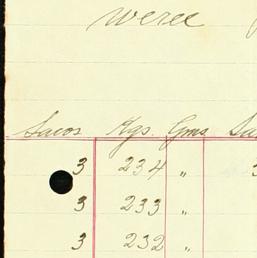 weree
Sacos Kgs Gms Sa
3 234 "
3 233 "
3 232 "